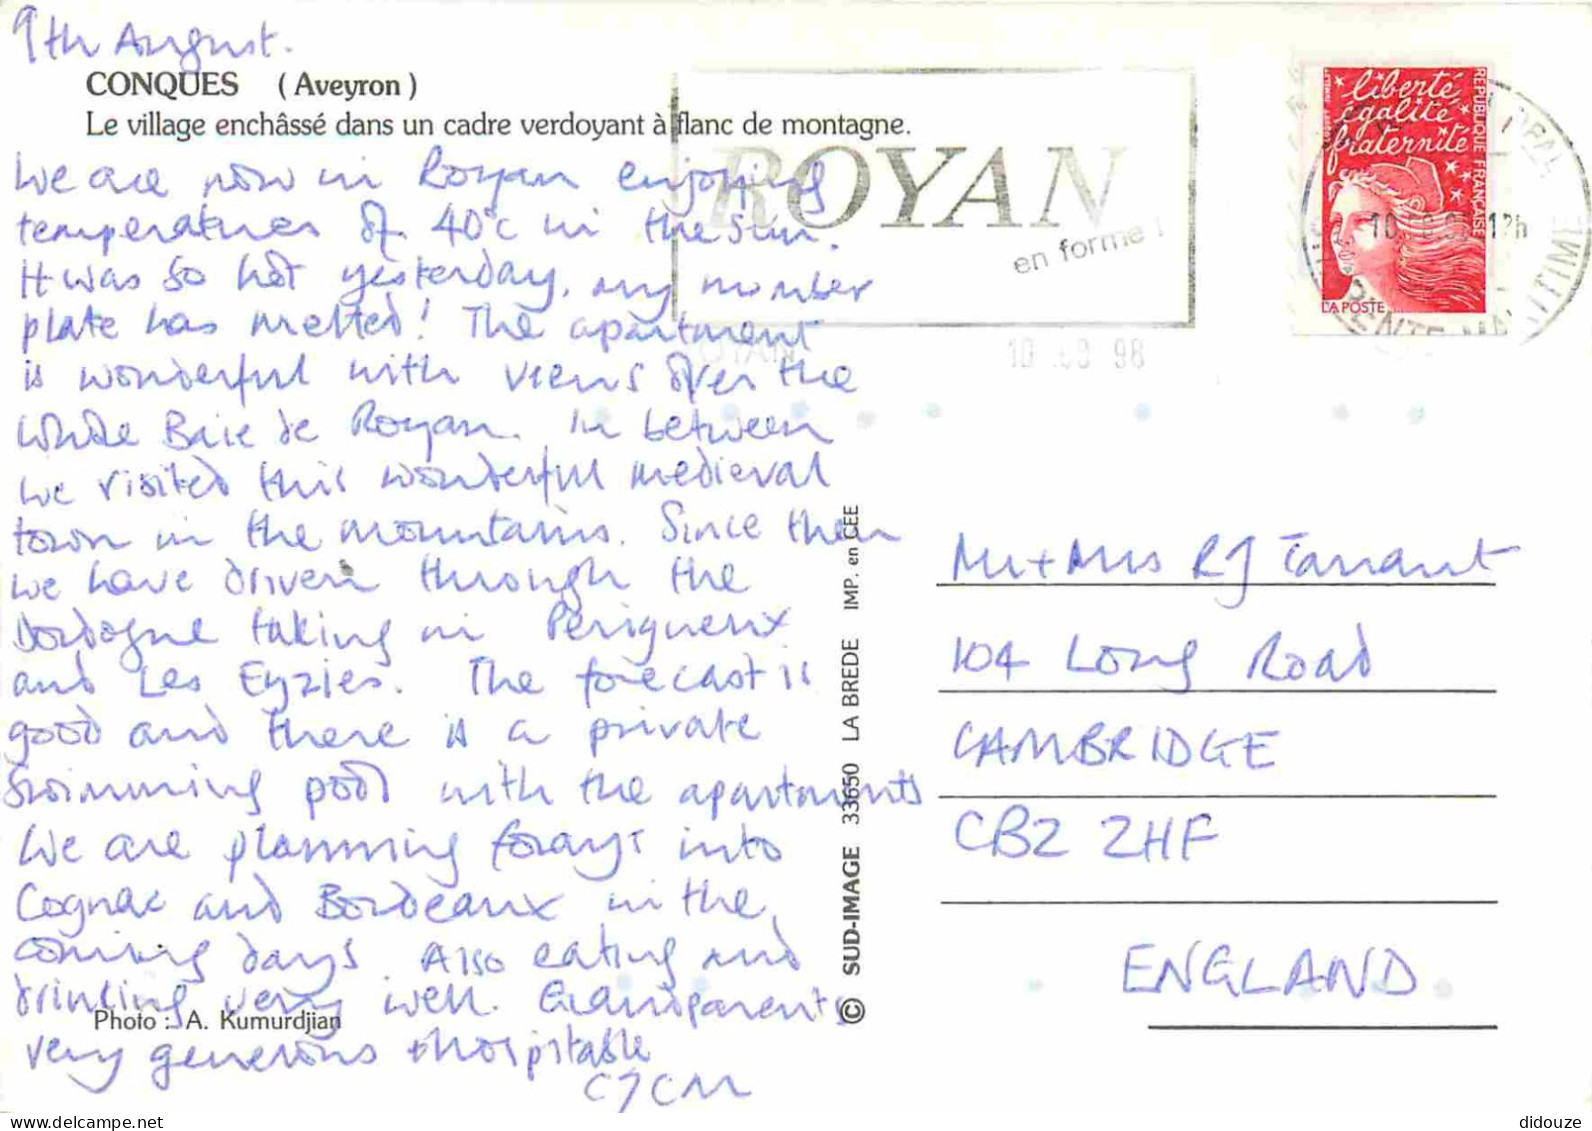 9th August.
CONQUES (Aveyron)
Le village enchâssé dans un cadre verdoyant à flanc de montagne.
We are now in Royan enjoying
temperatures of 40°c in the sun.
It was so hot yesterday, my number
plate has melted! The apartment
is wonderful with views over the
whole Baie de Royan. In between
we visited this wonderful medieval
town in the mountains. Since then
we have driven through the
Dordogne taking in Perigueux
and Les Eyzies. The forecast is
good and there is a private
swimming pool with the apartments
We are planning forays into
Cognac and Bordeaux in the
coming days. Also eating and
drinking very well. Grandparents
Photo : A. Kumurdjian
very generous + hospitable
CJCM
© SUD-IMAGE 33650 LA BREDE IMP. en CEE
ROYAN
en forme !
OYAN
10 .08 98
liberté
égalité
fraternité
RÉPUBLIQUE FRANÇAISE
LA POSTE
12h
Mr + Mrs RJ Tarrant
104 Long Road
CAMBRIDGE
CB2 2HF
ENGLAND
www.delcampe.net
didouze